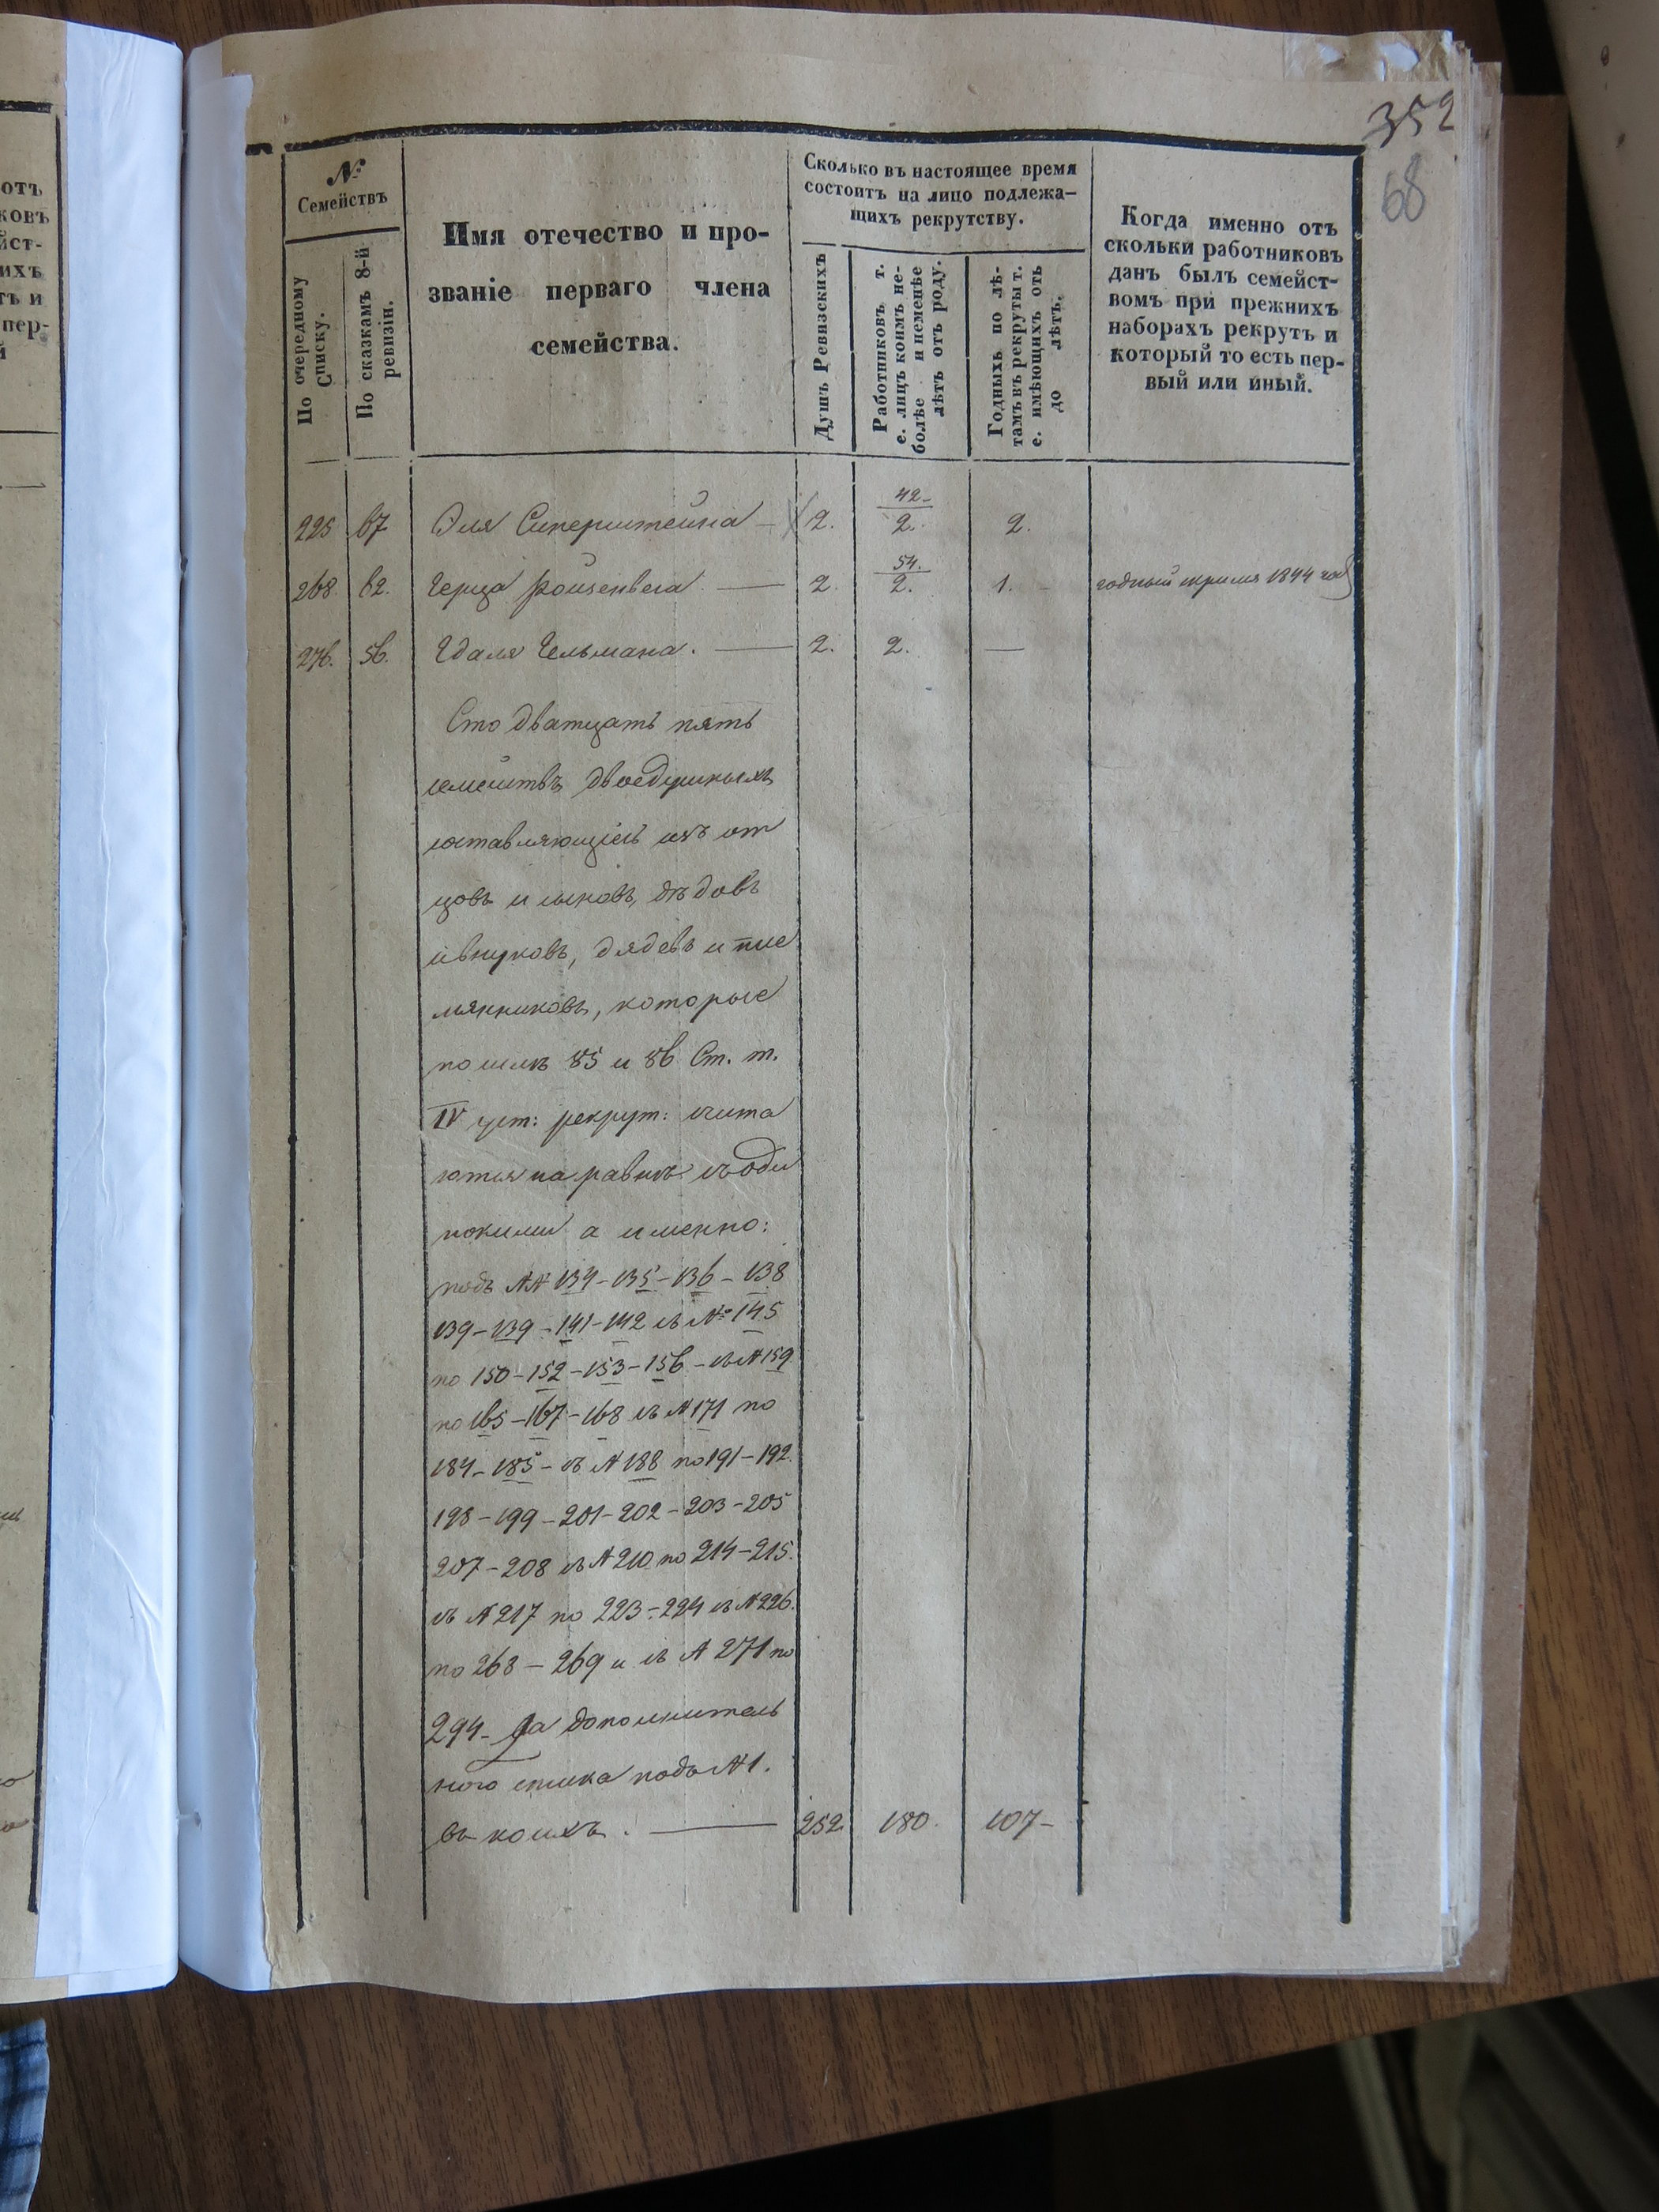 352
68
№
Семействъ
По очередному Списку.
По сказкамъ 8-й ревизіи.
Имя отечество и про-
званіе перваго члена
семейства.
Сколько въ настоящее время
состоитъ на лицо подлежа-
щихъ рекрутству.
Душъ Ревизскихъ
Работниковъ т.
е. лицъ коимъ не-
болѣе и неменѣе
лѣтъ отъ роду.
Годныхъ по лѣ-
тамъ въ рекруты т.
е. имѣющихъ отъ
до лѣтъ.
Когда именно отъ
скольки работниковъ
данъ былъ семейст-
вомъ при прежнихъ
наборахъ рекрутъ и
который то есть пер-
вый или иный.
42
225 67 Эля Сиперштейна 2. 2. 2.
54.
268. 62. Герца 2. 2. 1. годный 1844
276. 56. Гдаля Гельмана. — 2. 2. —
Сто дватцать пять
семействъ двоедушныхъ
составляющіесь изъ от
цовъ и сыновъ, дѣдовъ
ивнуковъ, дядевъ и пле
мянниковъ, которые
по силѣ 85 и 86 Ст. т.
IV уст: рекрут: счита
ются на равнѣ съ оди
нокими а именно:
подъ №№ 134-135-136-138
139-139-141-142 съ №145
по 150-152-153-156-съ №159
по 165-167-168 съ №171 по
184-185-съ №188 по 191-192.
198-199-201-202-203-205
207-208 съ №210 по 214-215.
съ №217 по 223-224 съ №226.
по 268-269 и съ №271 по
294. дополнитель
ного списка подъ №1.
въ коихъ. — 252. 180. 107-